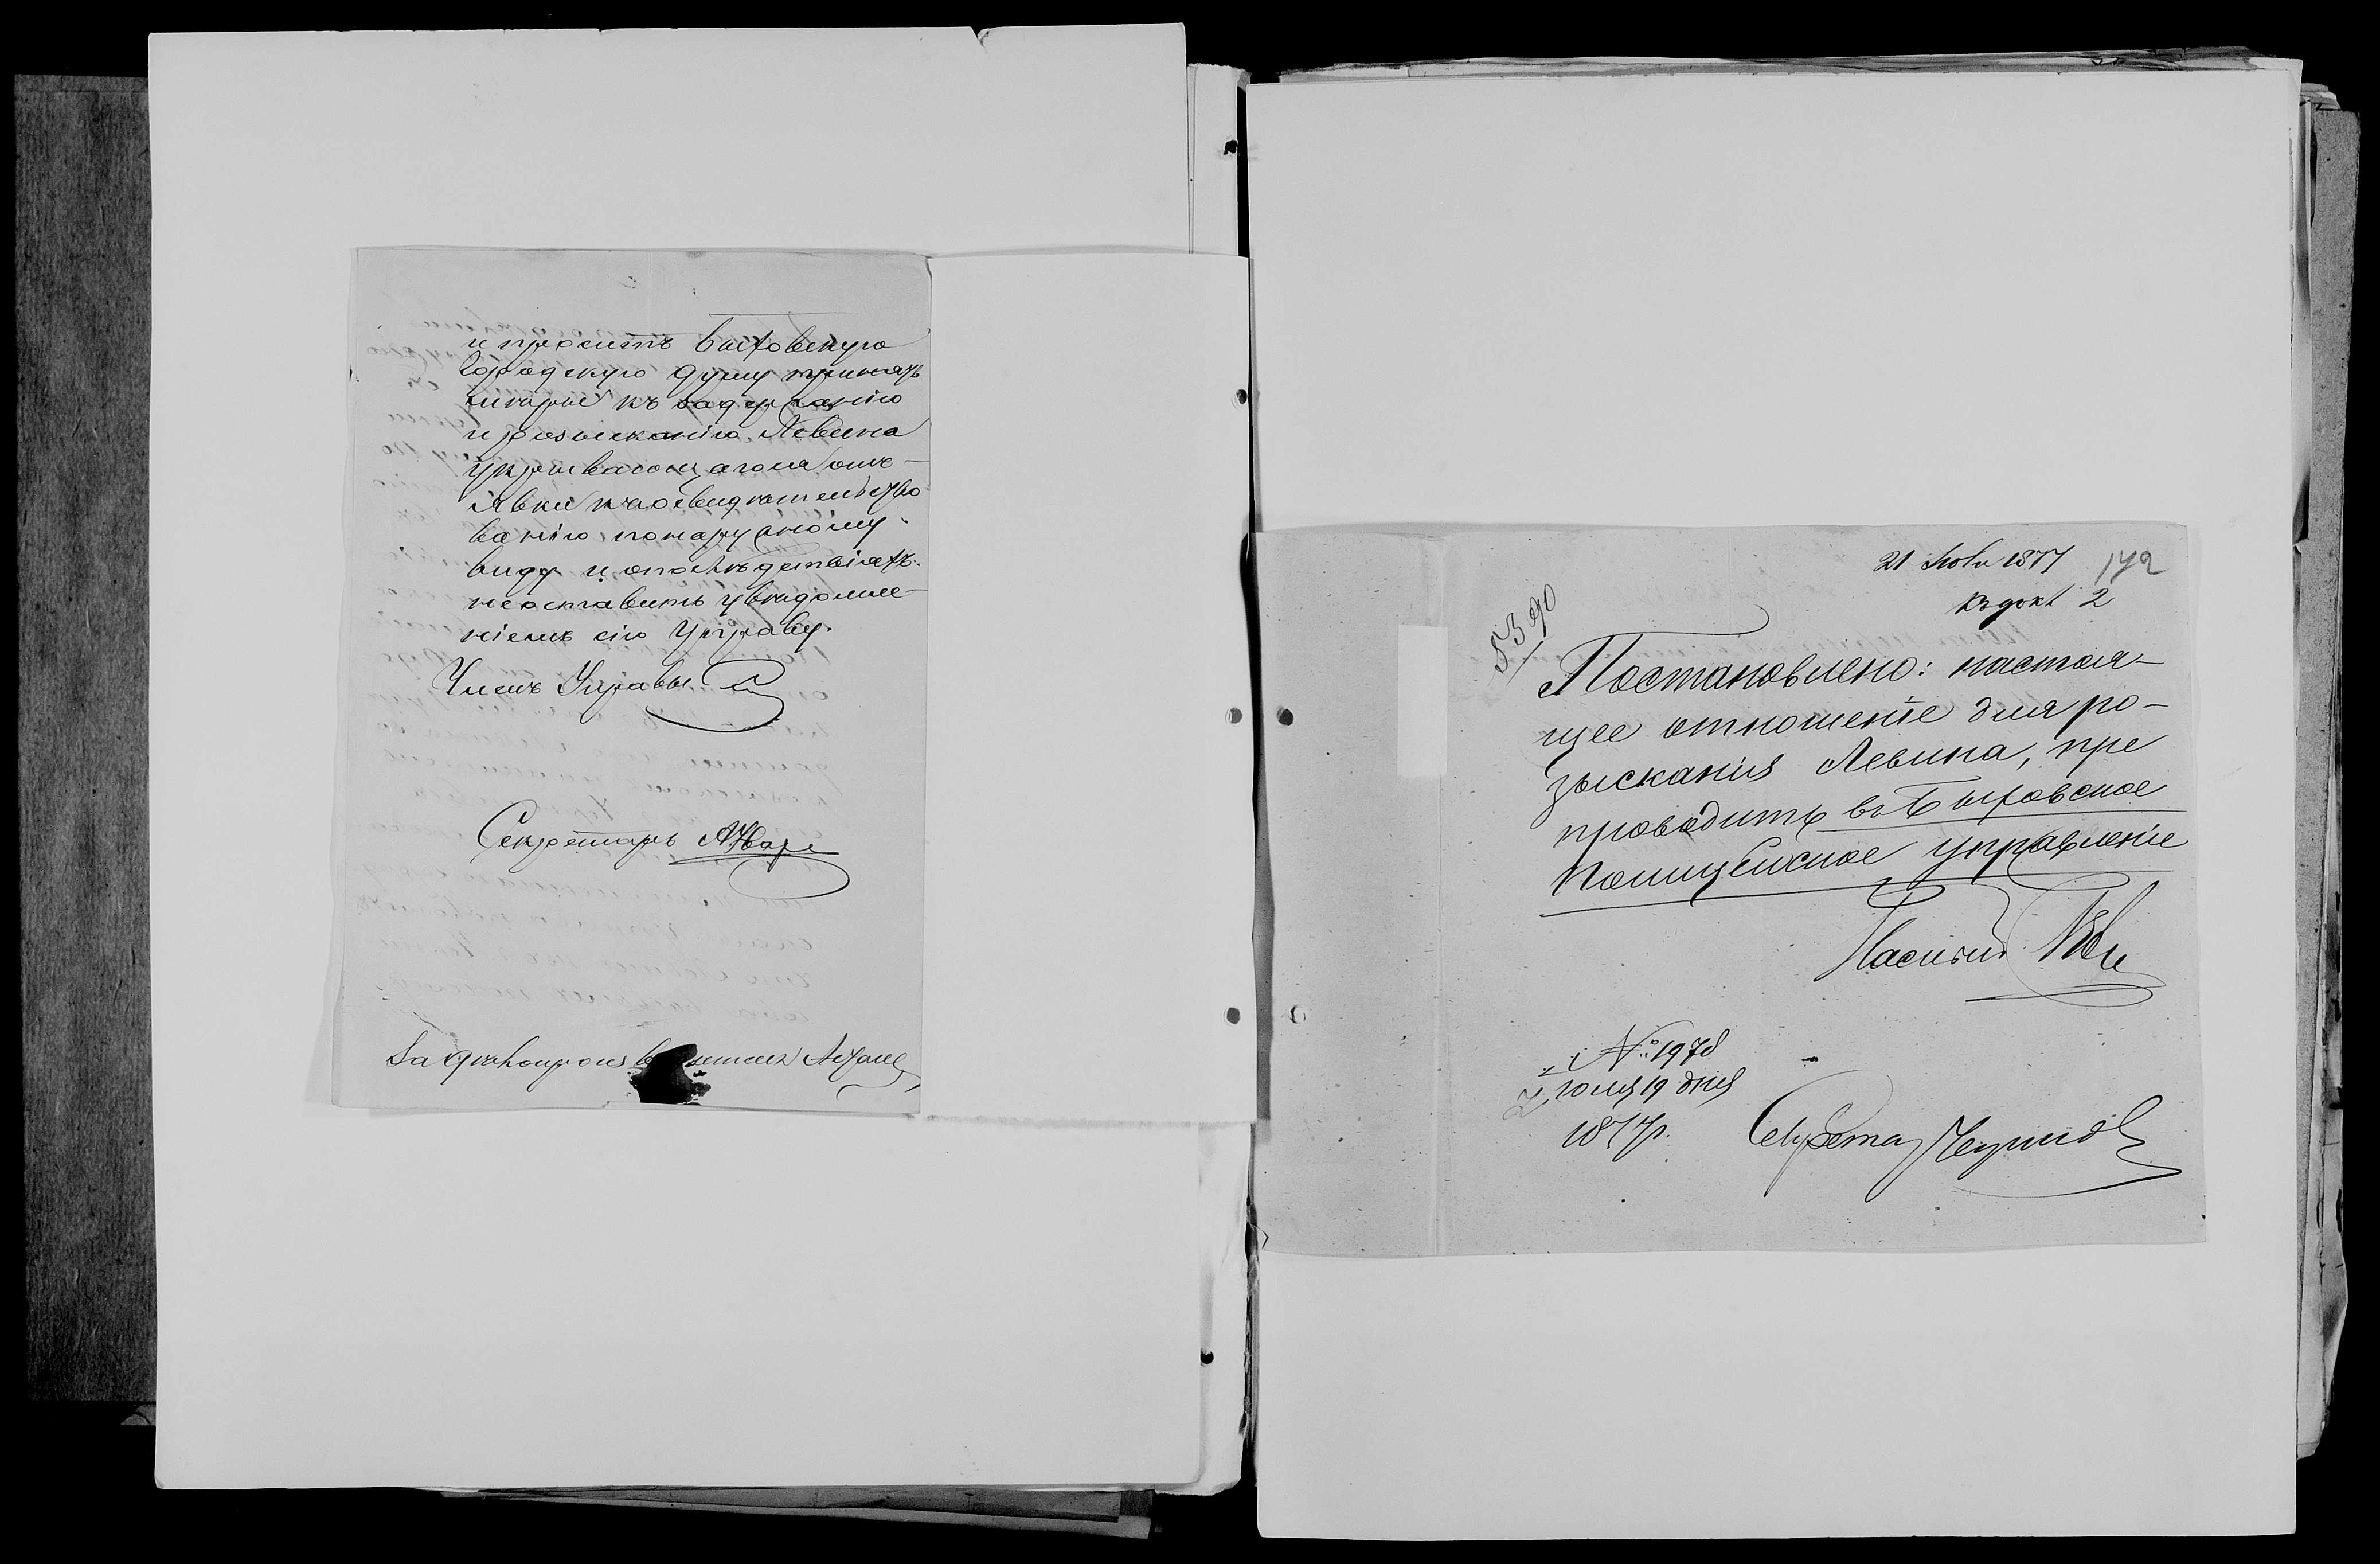 и проситъ Быховскую
Городскую Думу принять
мѣры къ задержанію
и розысканію Левина
укрывающагося отъ
явки къ освидѣтельство
ванію по наружному
виду и о послѣдствіяхъ
не оставить увѣдомле-
ніемъ сію Управу.
Членъ Управы
Секретарь
21 Іюля 1877
172
къ докл 2
5390
Постановлено: настоя-
щее отношеніе для ро-
зысканія Левина, пре
проводить въ Быховское
Полицейское управленіе
№ 1978
Іюля 19 дня
1877 г.
Секретарь